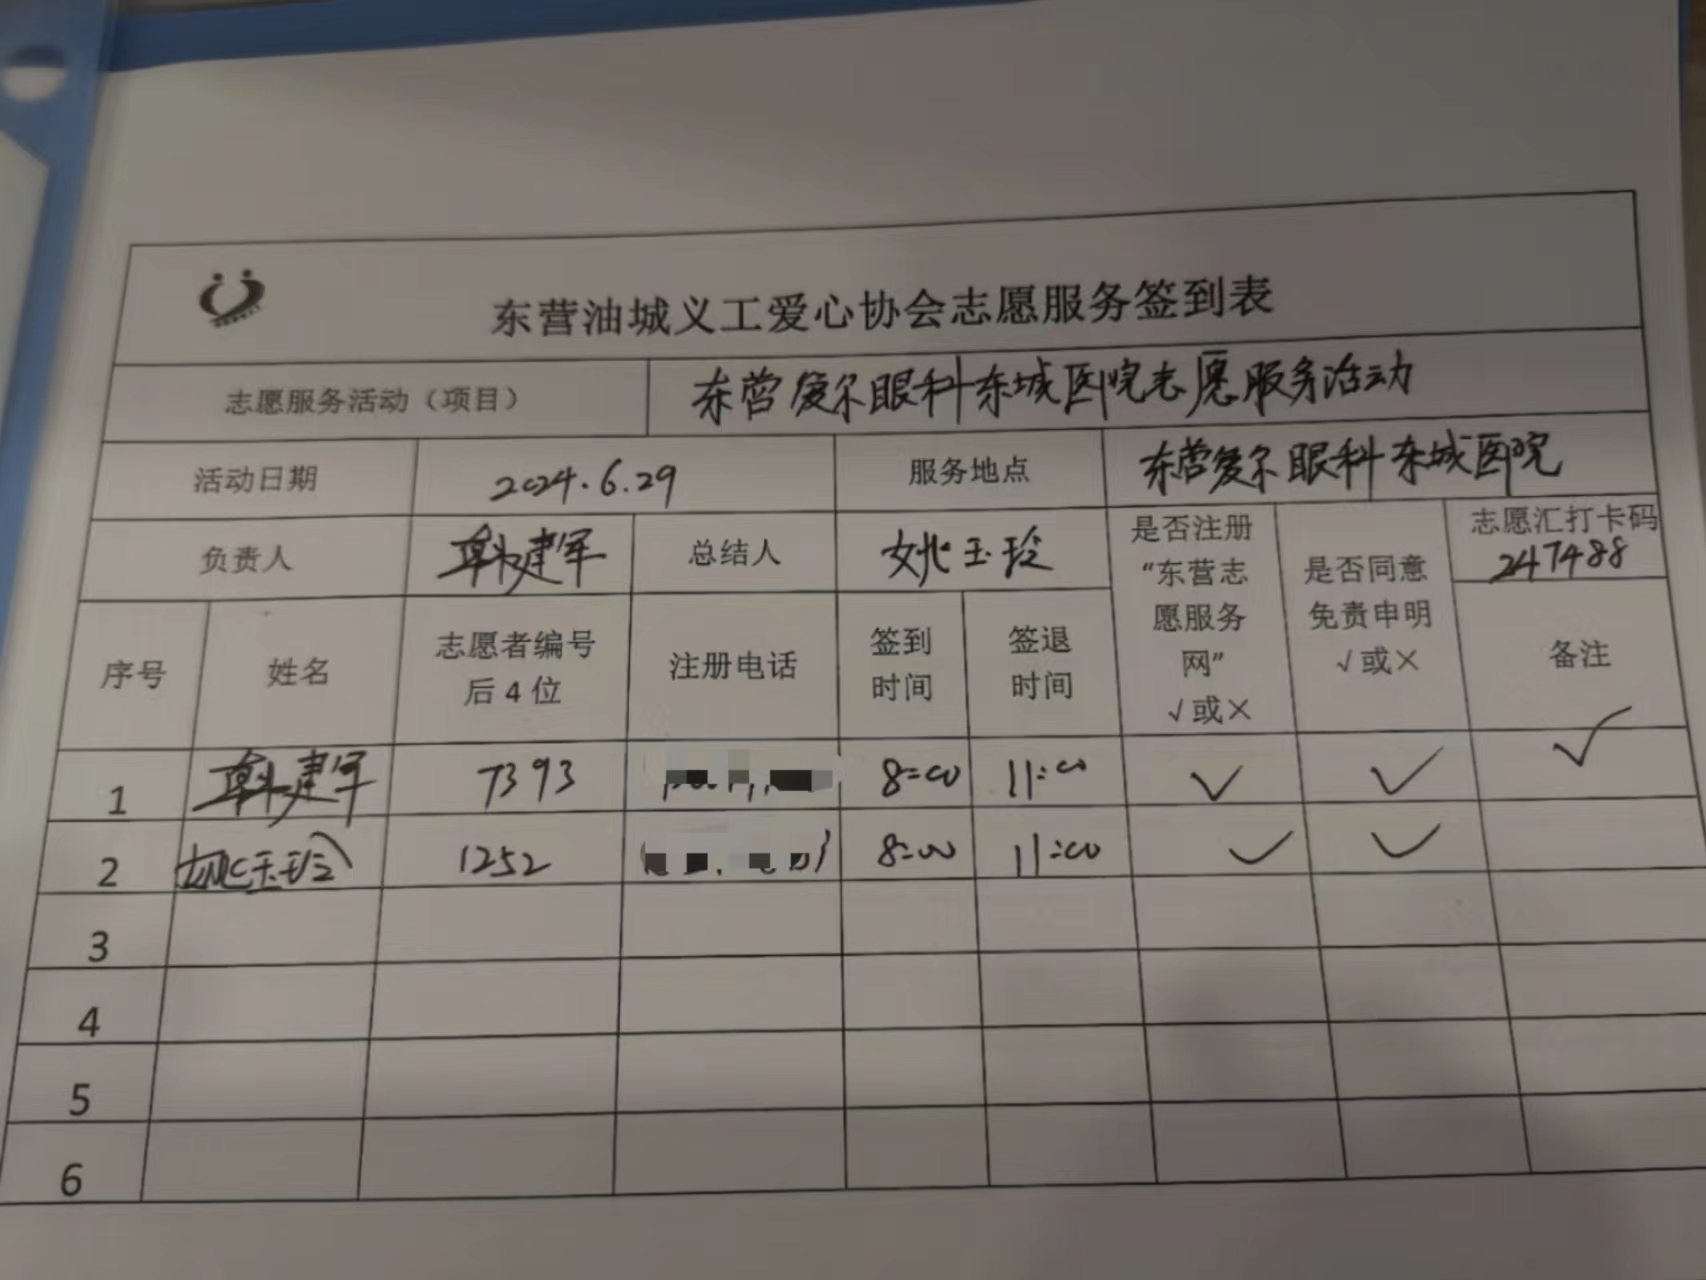 东营油城义工爱心协会志愿服务签到表
志愿服务活动（项目） 东营爱尔眼科东城医院志愿服务活动
活动日期 2024.6.29 服务地点 东营爱尔眼科东城医院
负责人 建军 总结人 姚玉玲 是否注册“东营志愿服务网”√或× 是否同意免责申明√或× 志愿汇打卡码 247488
序号 姓名 志愿者编号后4位 注册电话 签到时间 签退时间 备注
1 建军 7393 8:00 11:00 ✓ ✓ ✓
2 姚玉玲 1252 8:00 11:00 ✓ ✓
3
4
5
6